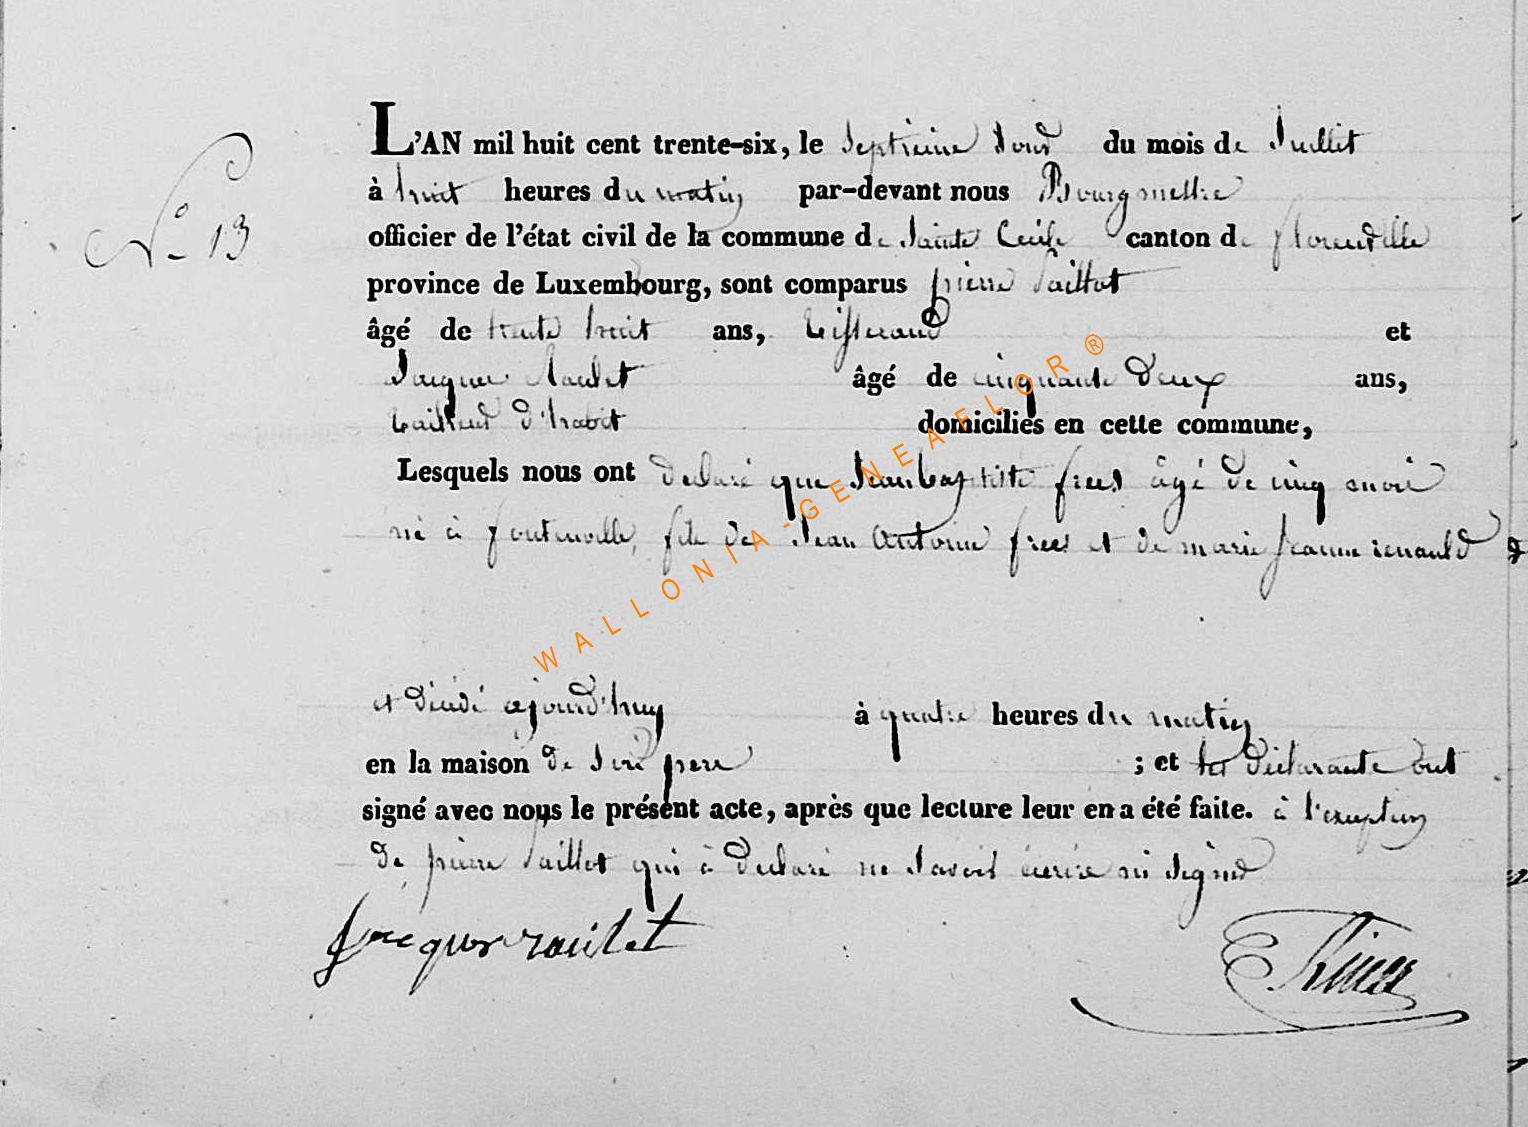 N° 13
L'AN mil huit cent trente-six, le septieme Jour du mois de Juillet
à huit heures du matin par-devant nous Bourgmestre
officier de l'état civil de la commune de Sainte Cecile canton de florenville
province de Luxembourg, sont comparus pierre Saillot
âgé de trente huit ans, tisserand et
Jacques Roulet âgé de cinquante deux ans,
tailleur d'habit domiciliés en cette commune,
Lesquels nous ont declaré que Jean baptiste frees âgé de cinq mois
né à fontenoille, fils de Jean Antoine frees et de marie jeanne renauld
et décédé ajourd'huy à quatre heures du matin
en la maison de son pere ; et les déclarants ont
signé avec nous le présent acte, après que lecture leur en a été faite. à l'exception
de pierre Saillot qui à declaré ne savoir écrire ni signer
jacques roulet
WALLONIA-GENEAFLOR®